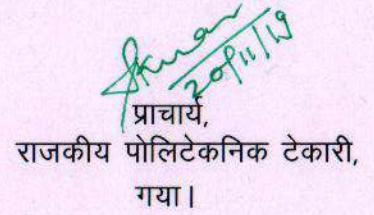 20/11/19
प्राचार्य,
राजकीय पोलिटेकनिक टेकारी,
गया।